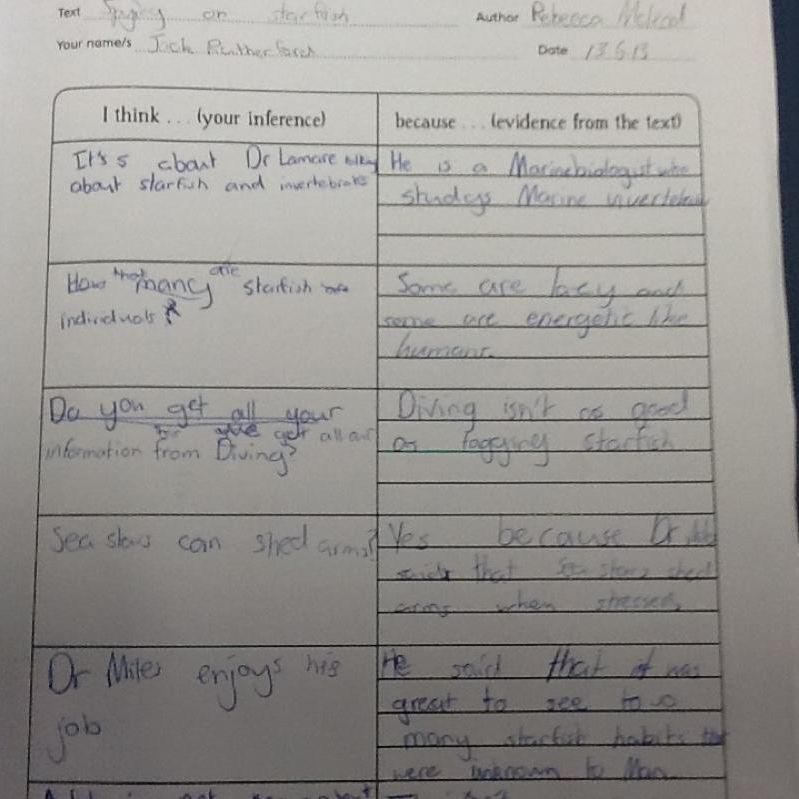 Text Spying on starfish
Author Rebecca Mcleod
Your name/s Jack Rutherford
Date 13.6.13
I think ... (your inference)
because ... (evidence from the text)
It's s about Dr Lamare talking
about starfish and invertebrates
He is a Marinebiologist who
studeys Marine
How that many are starfish
individuals
Some are lacy and
some are energetic like
humans.
Do you get all your
get all our
information from Diving?
Diving isn't as good
as tagging starfish
Sea stars can shed arms?
Yes because Dr
said that Sea stars shed
arms when stressed
Dr Miles enjoys his
job
He said that it was
great to see to so
many starfish habits
were unknown to Man